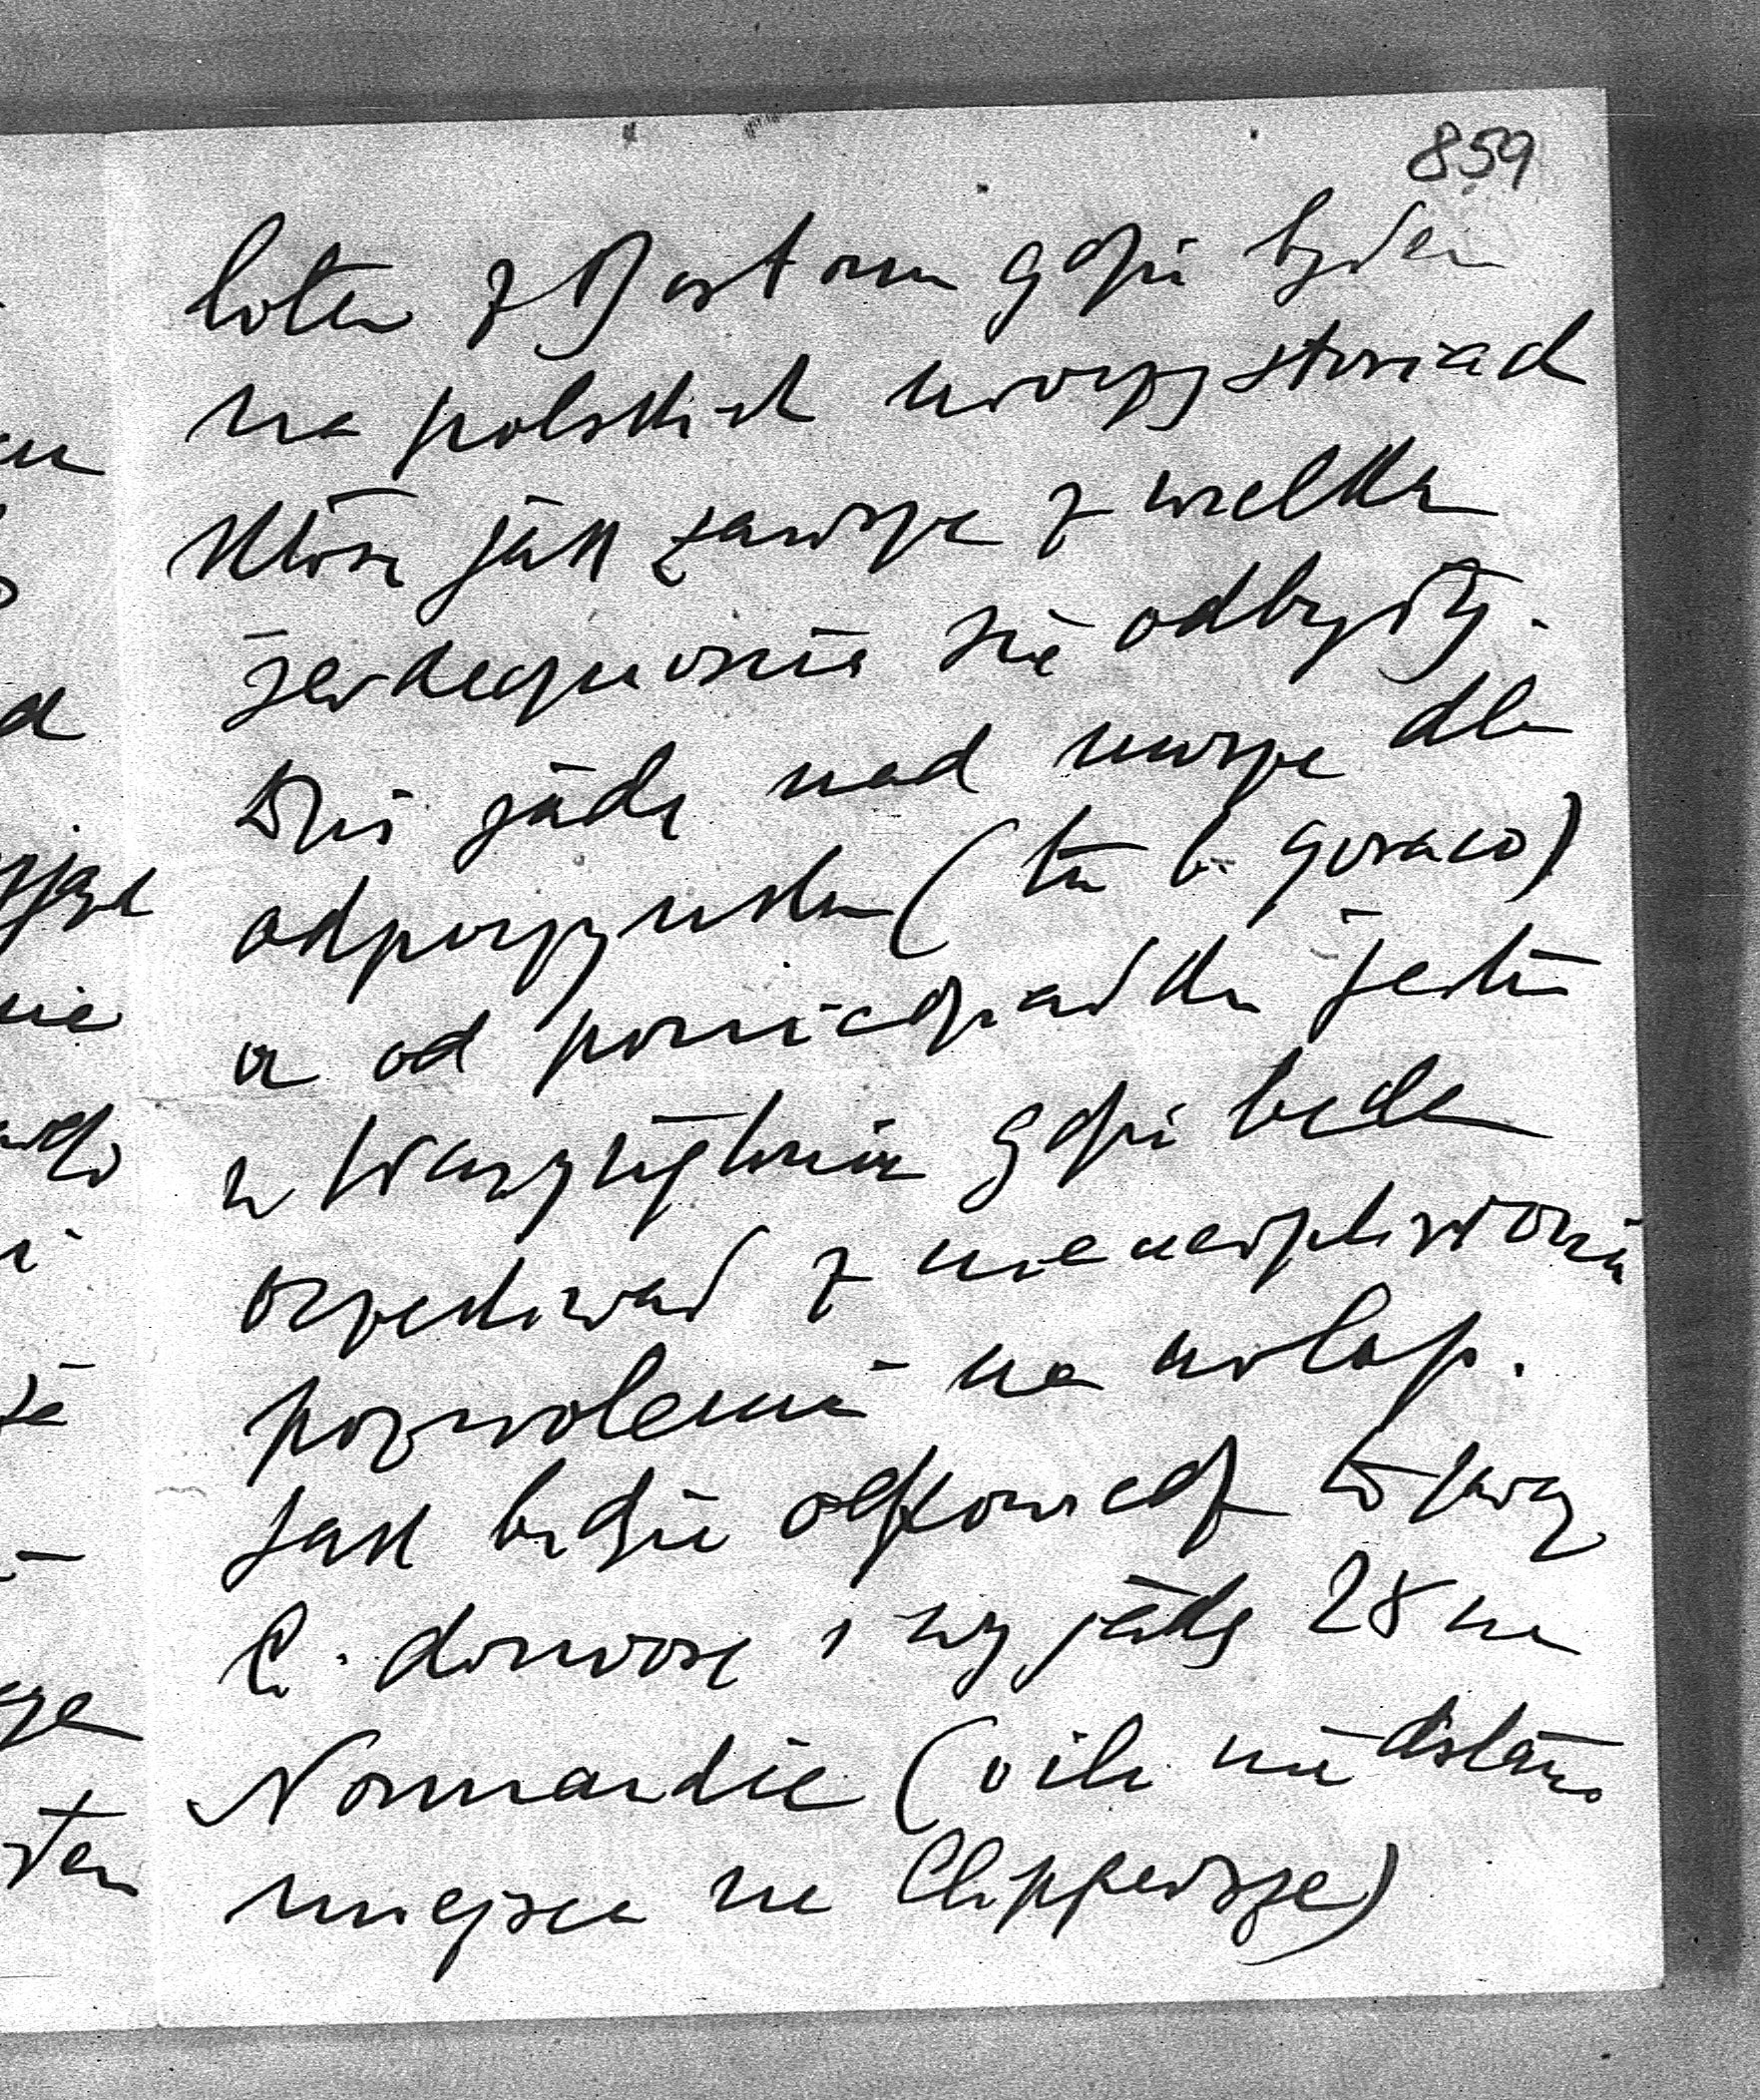 859
lotem z Bostonu gdzie byłem
na polskich uroczystościach
które jak zawsze z wielką
serdecznością się odbyły.
Dziś jadę nad morze dla
odpoczynku (tu b. gorąco)
a od poniedziałku jestem
w Waszyngtonie gdzie będę
oczekiwać z niecierpliwością
pozwolenia na urlop.
Jak będzie odpowiedź to zaraz
Ci doniosę i wyjadę 28 na
Normandie (o ile nie dostanę
miejsca na Clipperze)